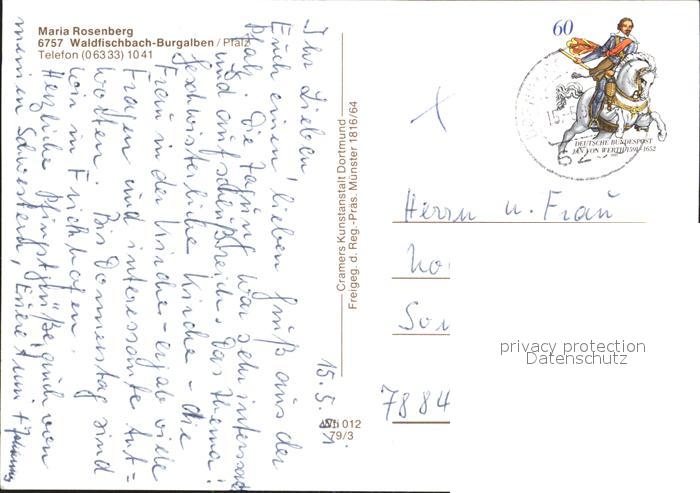 Maria Rosenberg
6757 Waldfischbach-Burgalben / Pfalz
Telefon (06333) 1041
15. 5. 91.
Ihr Lieben!
Euch einen lieben Gruß aus der
Pfalz. Die Tagung war sehr interessant
und aufschlußreich. Das Thema:
Geschwisterliche Kirche - die
Frau in der Kirche - ergab viele
Fragen und interessante Ant=
worten. Bis Donnerstag sind
wir in Frickhofen.
Herzliche Pfingstgrüße, auch von
meinen Schwestern, Eure
Johannes
Cramers Kunstanstalt Dortmund
Freigeg. d. Reg.-Präs. Münster 1816/64
Wfi 012
79/3
60
DEUTSCHE BUNDESPOST
JAN VON WERTH 1591-1652
Herrn u. Frau
7884
privacy protection
Datenschutz